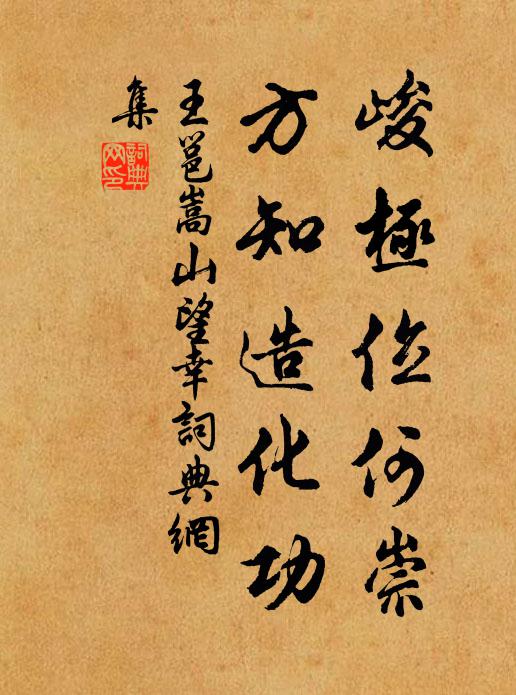 峻極位何崇
方知造化功
王邕嵩山望幸詞典網
集
詞典
网印